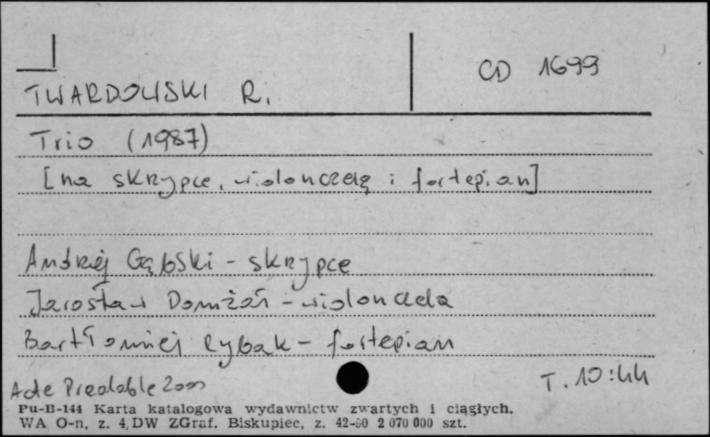 CD 1699
TWARDOWSKI R.
Trio (1987)
[na skrzypce, wiolonczelę i fortepian]
Andrzej Gębski - skrzypce
Jarosław Domżał - wiolonczela
Bartłomiej Rybak - fortepian
Acte Préalable 2000
T. 10:44
Pu-B-144 Karta katalogowa wydawnictw zwartych i ciągłych.
WA O-n, z. 4, DW ZGraf. Biskupiec, z. 42-80 2 070 000 szt.